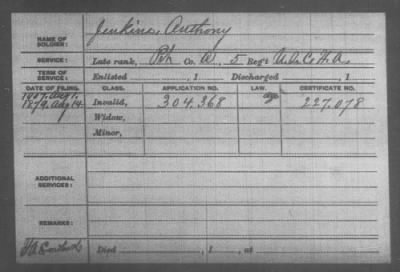 NAME OF SOLDIER: Jenkins, Anthony
SERVICE: Late rank, Pvt Co. A, 5 Reg't U.S.C.H.A.
TERM OF SERVICE: Enlisted , 1 Discharged , 1
DATE OF FILING. CLASS. APPLICATION NO. LAW. CERTIFICATE NO.
1879. Aug 14. Invalid, 304.368 227.078
Widow,
Minor,
ADDITIONAL SERVICES:
REMARKS:
Died , 1 , at